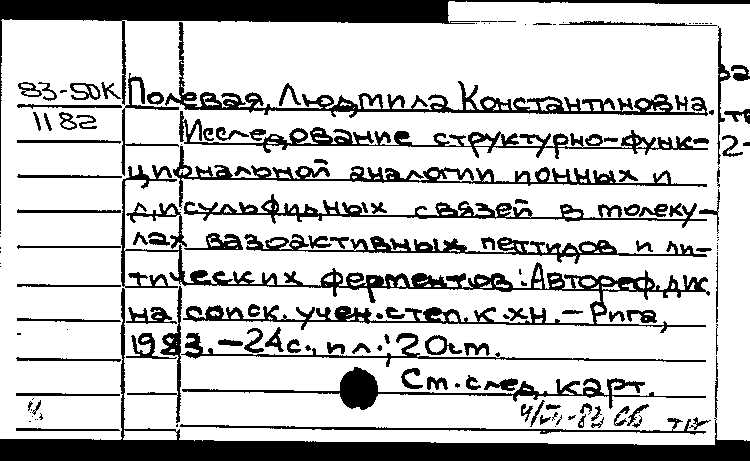 83-50К Полевая, Людмила Константиновна.
1182 Исследование структурно-функ-
циональной аналогии ионных и
дисульфидных связей в молеку-
лах вазоактивных пептидов и ли-
тических ферментов: Автореф. дис.
на соиск. учен. степ. к.х.н. – Рига,
1983. – 24с., ил.; 20см.
См. след. карт.